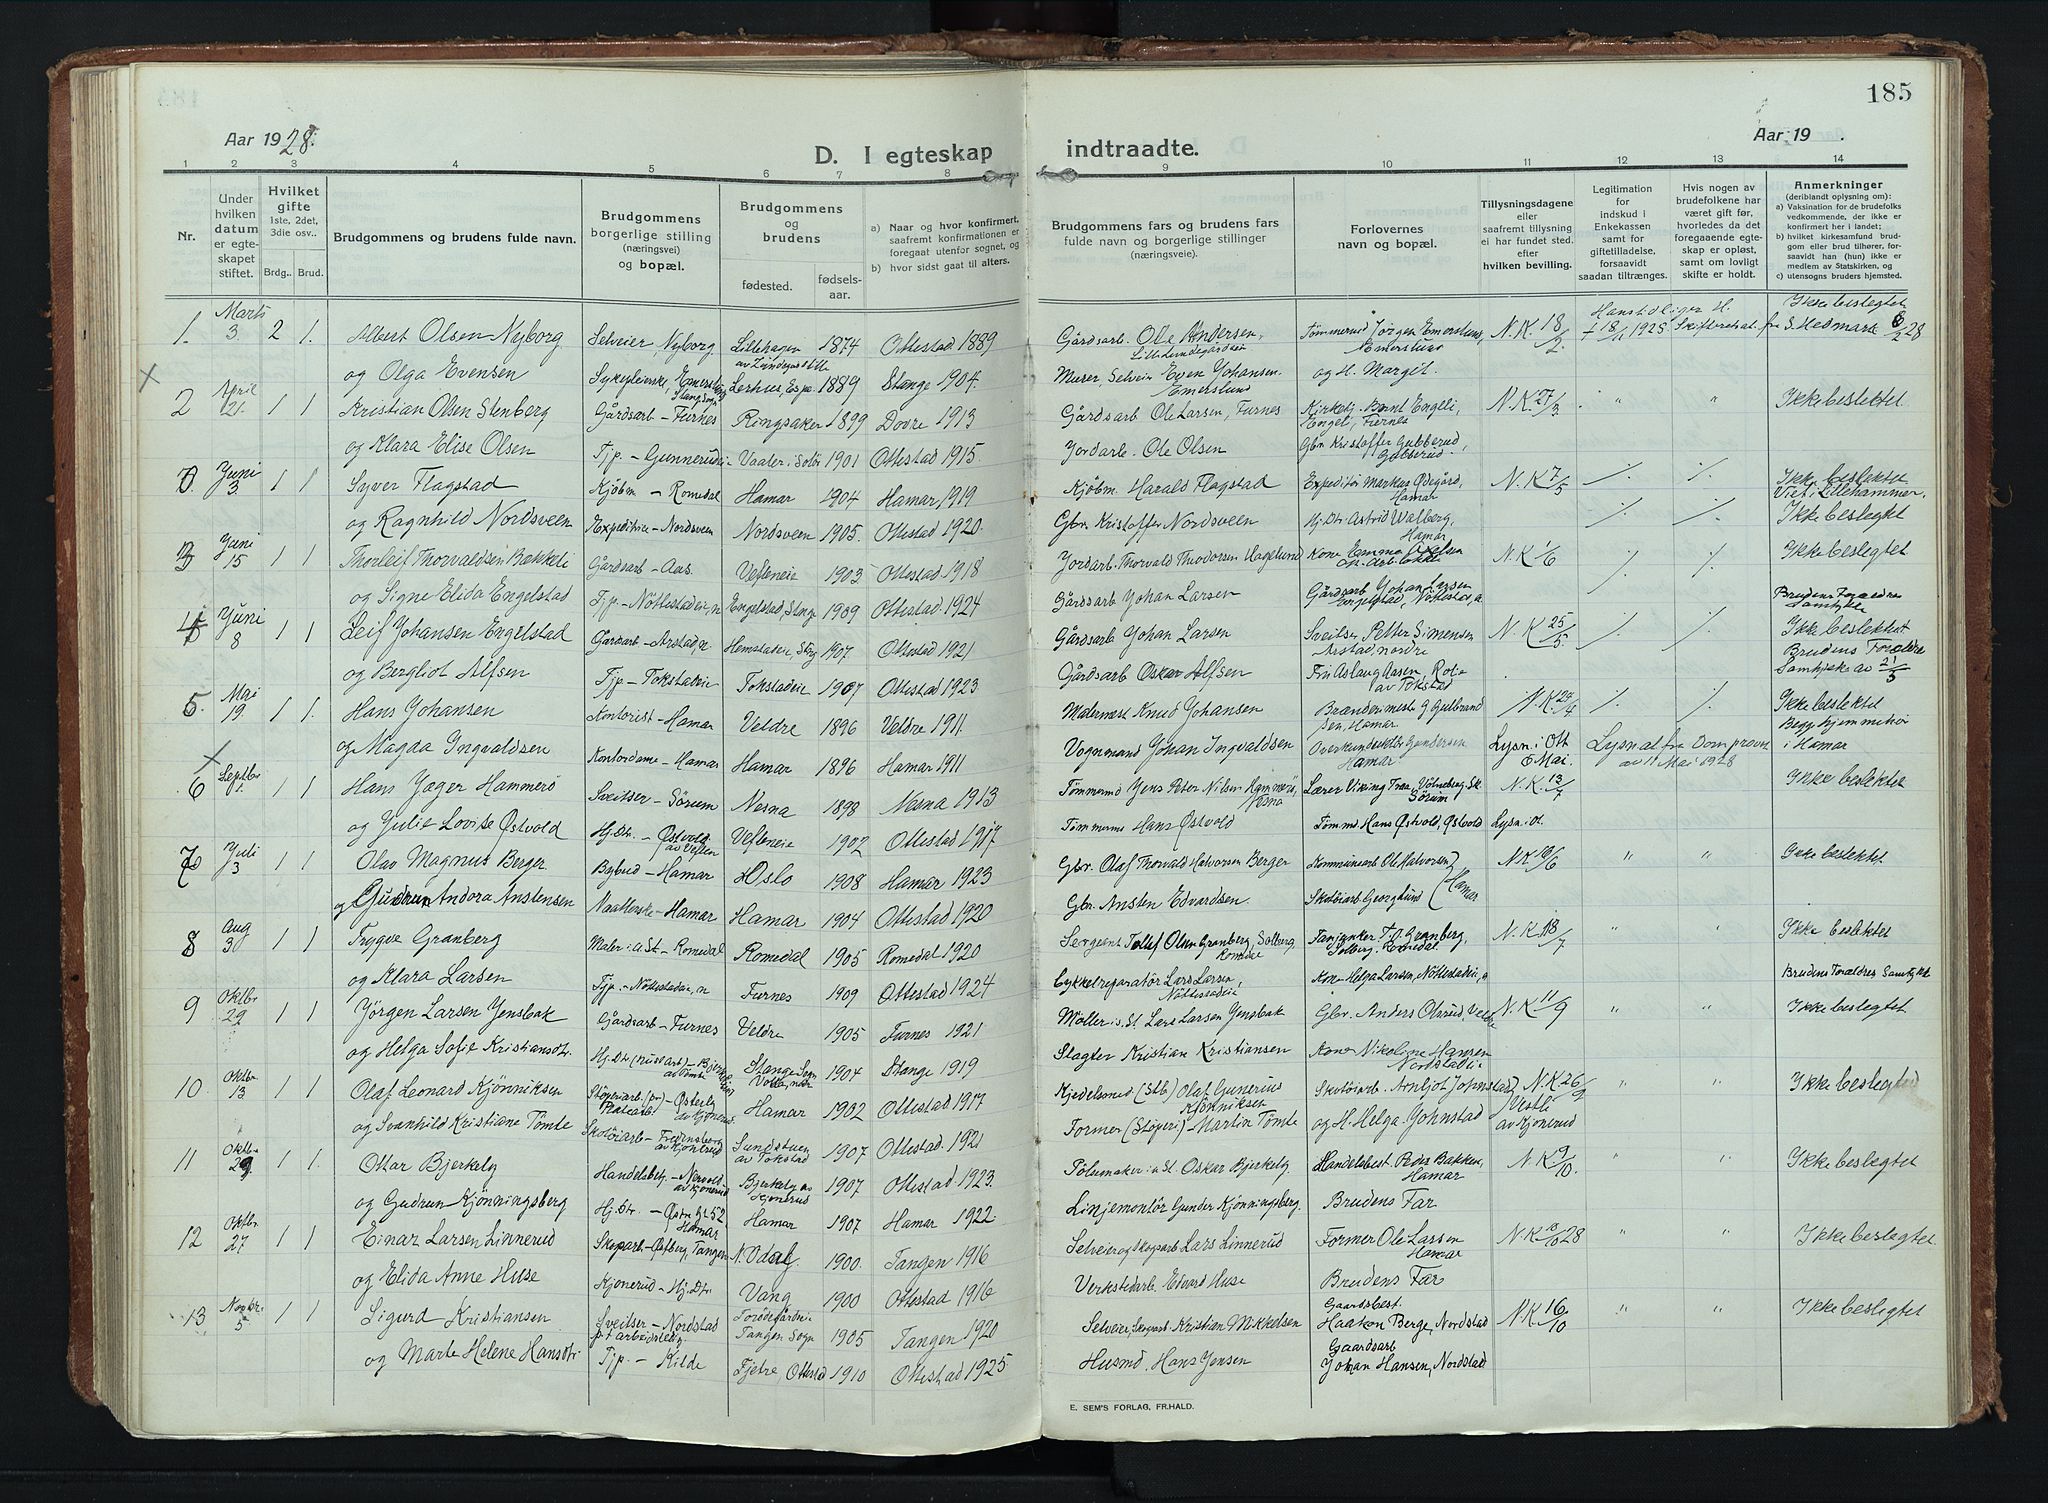 185
Aar 1928.
D. I egteskap indtraadte.
Aar 19 .
1 2 3 4 5 6 7 8 9 10 11 12 13 14
Nr.
Under hvilken datum er egteskapet stiftet.
Hvilket gifte 1ste, 2det, 3die osv..
Brdg.. Brud.
Brudgommens og brudens fulde navn.
Brudgommens borgerlige stilling (næringsvei) og bopæl.
Brudgommens og brudens
fødested. fødsels-aar.
a) Naar og hvor konfirmert, saafremt konfirmationen er foregaat utenfor sognet, og
b) hvor sidst gaat til alters.
Brudgommens fars og brudens fars fulde navn og borgerlige stillinger (næringsveie).
Forlovernes navn og bopæl.
Tillysningsdagene eller saafremt tillysning ei har fundet sted. efter hvilken bevilling.
Legitimation for indskud i Enkekassen samt for giftetilladelse, forsaavidt saadan tiltrænges.
Hvis nogen av brudefolkene har været gift før, hvorledes da det foregaaende egteskap er opløst, samt om lovligt skifte er holdt.
Anmerkninger (deriblandt oplysning om):
a) Vaksination for de brudefolks vedkommende, der ikke er konfirmert her i landet;
b) hvilket kirkesamfund brudgom eller brud tilhører, forsaavidt han (hun) ikke er medlem av Statskirken, og
c) utensogns bruders hjemsted.
1. Marts 3. 2 1. Albert Olsen Nyborg Selveier, Nyborg Lillehagen 1874 Ottestad 1889 Gårdsarb. Ole Andersen, Tømmermd Jørgen Emerslund, Emerslund N.K. 18/2. Ikke beslegtet
og Olga Evensen 1889 Stange 1904. Murer, Selveier Even Johansen Emerslund og H. Margit.
2 April 21. 1 1 Kristian Olsen Stenberg Gårdsarb - Furnes Ringsaker 1899 Dovre 1913 Gårdsarb Ole Larsen, Furnes Kirketj. Bernt Engeli, Engeli, Furnes N.K. 27/3 " " Ikke beslektet.
og Klara Elise Olsen Tjp - Gunnerudei Vaaler i Solør 1901 Ottestad 1915. Jordarb. Ole Olsen Gbr Kristoffer Gubberud, Gubberud.
Juni 3. 1 1 Syver Flagstad Kjøbm - Romedal Hamar 1904 Hamar 1919 Kjøbm. Harald Flagstad Expeditør Markus Ødegård, Hamar N.K. 7/5 Ikke beslektet Viet i Lillehammer.
og Ragnhild Nordsveen Expeditrice - Nordsveen Nordsveen 1905. Ottestad 1920. Gbr. Kristoffer Nordsveen Hj.Dtr. Astrid Walberg, Hamar Ikke beslegtet
3 Juni 15 1 1 Thorleif Thorvaldsen Bakkeli Gårdsarb - Aas. Vefleneie 1903 Ottestad 1918 Jordarb. Thorvald Theodorsen Hagelund Kone Emma Axelsen N.K. 1/6 Ikke beslegtet
og Signe Elida Engelstad Tjp. - Nöttestadei, n Engelstad, Stange 1909 Ottestad. 1924 Gårdsarb Johan Larsen Gårdsarb Johan Larsen Engelstad, Nöttestad, n. Brudens Forældres Samtykke
4 Juni 8 1 1 Leif Johansen Engelstad Gardsarb - Arstad, n Hemstadeie, Stg 1907 Ottestad. 1921 Gårdsarb Johan Larsen Sveitser Petter Simensen Arstad nordre N.K. 25/5 Ikke beslektet
og Bergliot Alfsen Tjp - Tokstadeie Tokstadeie 1907 Ottestad 1923. Gårdsarb Oskar Alfsen Frk Aslaug Aasen, Rotli av Tokstad Brudens Forældre Samtykke av 21/5
5. Mai 19. 1 1. Hans Johansen Kontorist - Hamar Veldre 1896 Veldre 1911. Malermest Knud Johansen Brandermester G Gulbrandsen, Hamar N.K. 24/4 Ikke beslektet
og Magda Ingvaldsen Kontordame - Hamar Hamar 1896 Hamar 1911 Vognmand Johan Ingvaldsen Overkonduktør Gundersen Hamar Lysn. i Ott 6 Mai. Lysn.at fra Domprovn av 11 Mai 1928 Begge hjemmehør i Hamar
6 Septbr 1. 1 1 Hans Jager Hammerö Sveitser - Sörum Nesna 1898 Nesna 1913 Tömmermd Jens Peter Nilsen Hammerö, Nesna Lærer Viking Sörum N.K. 13/7 Ikke beslektet
og Julie Lovise Østvold Hj.Dtr. - Østvold av Veflen Vefleneie 1902 Ottestad 1917 Tømmerm Hans Østvold Tømmd Hans Østvold, Østvold Lysn. i O.
7 Juli 3 1 1 Olav Magnus Berger Bybud - Hamar Oslo 1908 Hamar 1923 Gbr. Olaf Thorvald Halvorsen Berger Kommunearb Ole Halvorsen N.K 16/6 " " Ikke beslektet
og Gudrun Andora Anstensen Hamar Hamar 1904 Ottestad 1920 Gbr. Ansten Edvardsen. Skotöiarb Georg Lund Hamar
8 Aug 3. 1 1 Trygve Granberg Maler i aSt. - Romedal Romedal 1905 Romedal 1920 Sergeant Tollef Olsen Granberg, Solberg, Romedal Granberg, Solberg, Romedal. N.K 18/7 " " Ikke beslektet
og Klara Larsen Tjp. - Nöttestadeie, n Furnes 1909 Ottestad 1924 Cykkelreparatör Lars Larsen, Nöttestadeie Kone Helga Larsen, Nöttestadeie, n Brudens Forældres Samtykke
9 Oktbr 29 1 1 Jörgen Larsen Jensbak Gårdsarb - Furnes Veldre 1905 Furnes 1921 Möller i.S. Lars Larsen Jensbak Gbr. Anders Olsrud, Veldre N.K 11/9 " " Ikke beslegtet
og Helga Sofie Kristiansdtr. 1904 Stange 1919 Slagter Kristian Kristiansen Kone Nikoline Hansen Nordstadeie
10 Oktbr 13 1 1 Olaf Leonard Kjönniksen Hamar 1902 Ottestad 1917 Kjedelsmed (Stb) Olaf Gunerius Kjönniksen Skotöiarb. Arnljot Johnstad N.K 26/9 " " Ikke beslegtet
og Svanhild Kristiane Tömte Skotöiarb - Fredensberg av Kjonerud Sundstuen av Tokstad 1907 Ottestad. 1921 Former (Støperi) - Martin Tömte og H. Helga Johnstad Vestli av Kjonerud
11 Oktbr 29 1 1. Ottar Bjerkely av Kjonerud Bjerkely av Kjonerud 1907 Ottestad 1923. Oskar Bjerkely Handelsbest. Peder Bakken, Hamar N.K 9/10. " " Ikke beslegtet
og Gudrun Kjönningsberg Hj.Dtr. - Østre Gt 52 Hamar Hamar 1907 Hamar 1922. Linjemontör Gunder Kjönningsberg. Brudens Far
12 Oktbr. 27 1 1 Einar Larsen Linnerud Skoparb - Østberg, Tangen N. Odal 1900. Tangen 1916 Selveier og Skogsarb Lars Linnerud Former Ole Larsen Hamar N.K 10/10 28 " " Ikke beslegtet.
og Elida Anne Huse Kjonerud - Hj.Dtr. Vang 1900 Ottestad 1916 Verkstedarb. Edvard Huse Brudens Far
13 Novbr. 5 1 1 Sigurd Kristiansen Sveitser - Nordstad p.t arbeidsledig Tangen Sogn 1905 Tangen 1920 Selveier, Skogarb. Kristian Mikkelsen Gaardsbest. Haakon Berge, Nordstad N.K 16/10 " " Ikke beslegtet
og Marte Helene Hansdtr. Tjp. - Kilde Fjetre, Ottestad 1910 Ottestad 1925. Husmd. Hans Jensen Gaardsarb Johan Hansen, Nordstad
E. SEM'S FORLAG, FR.HALD.